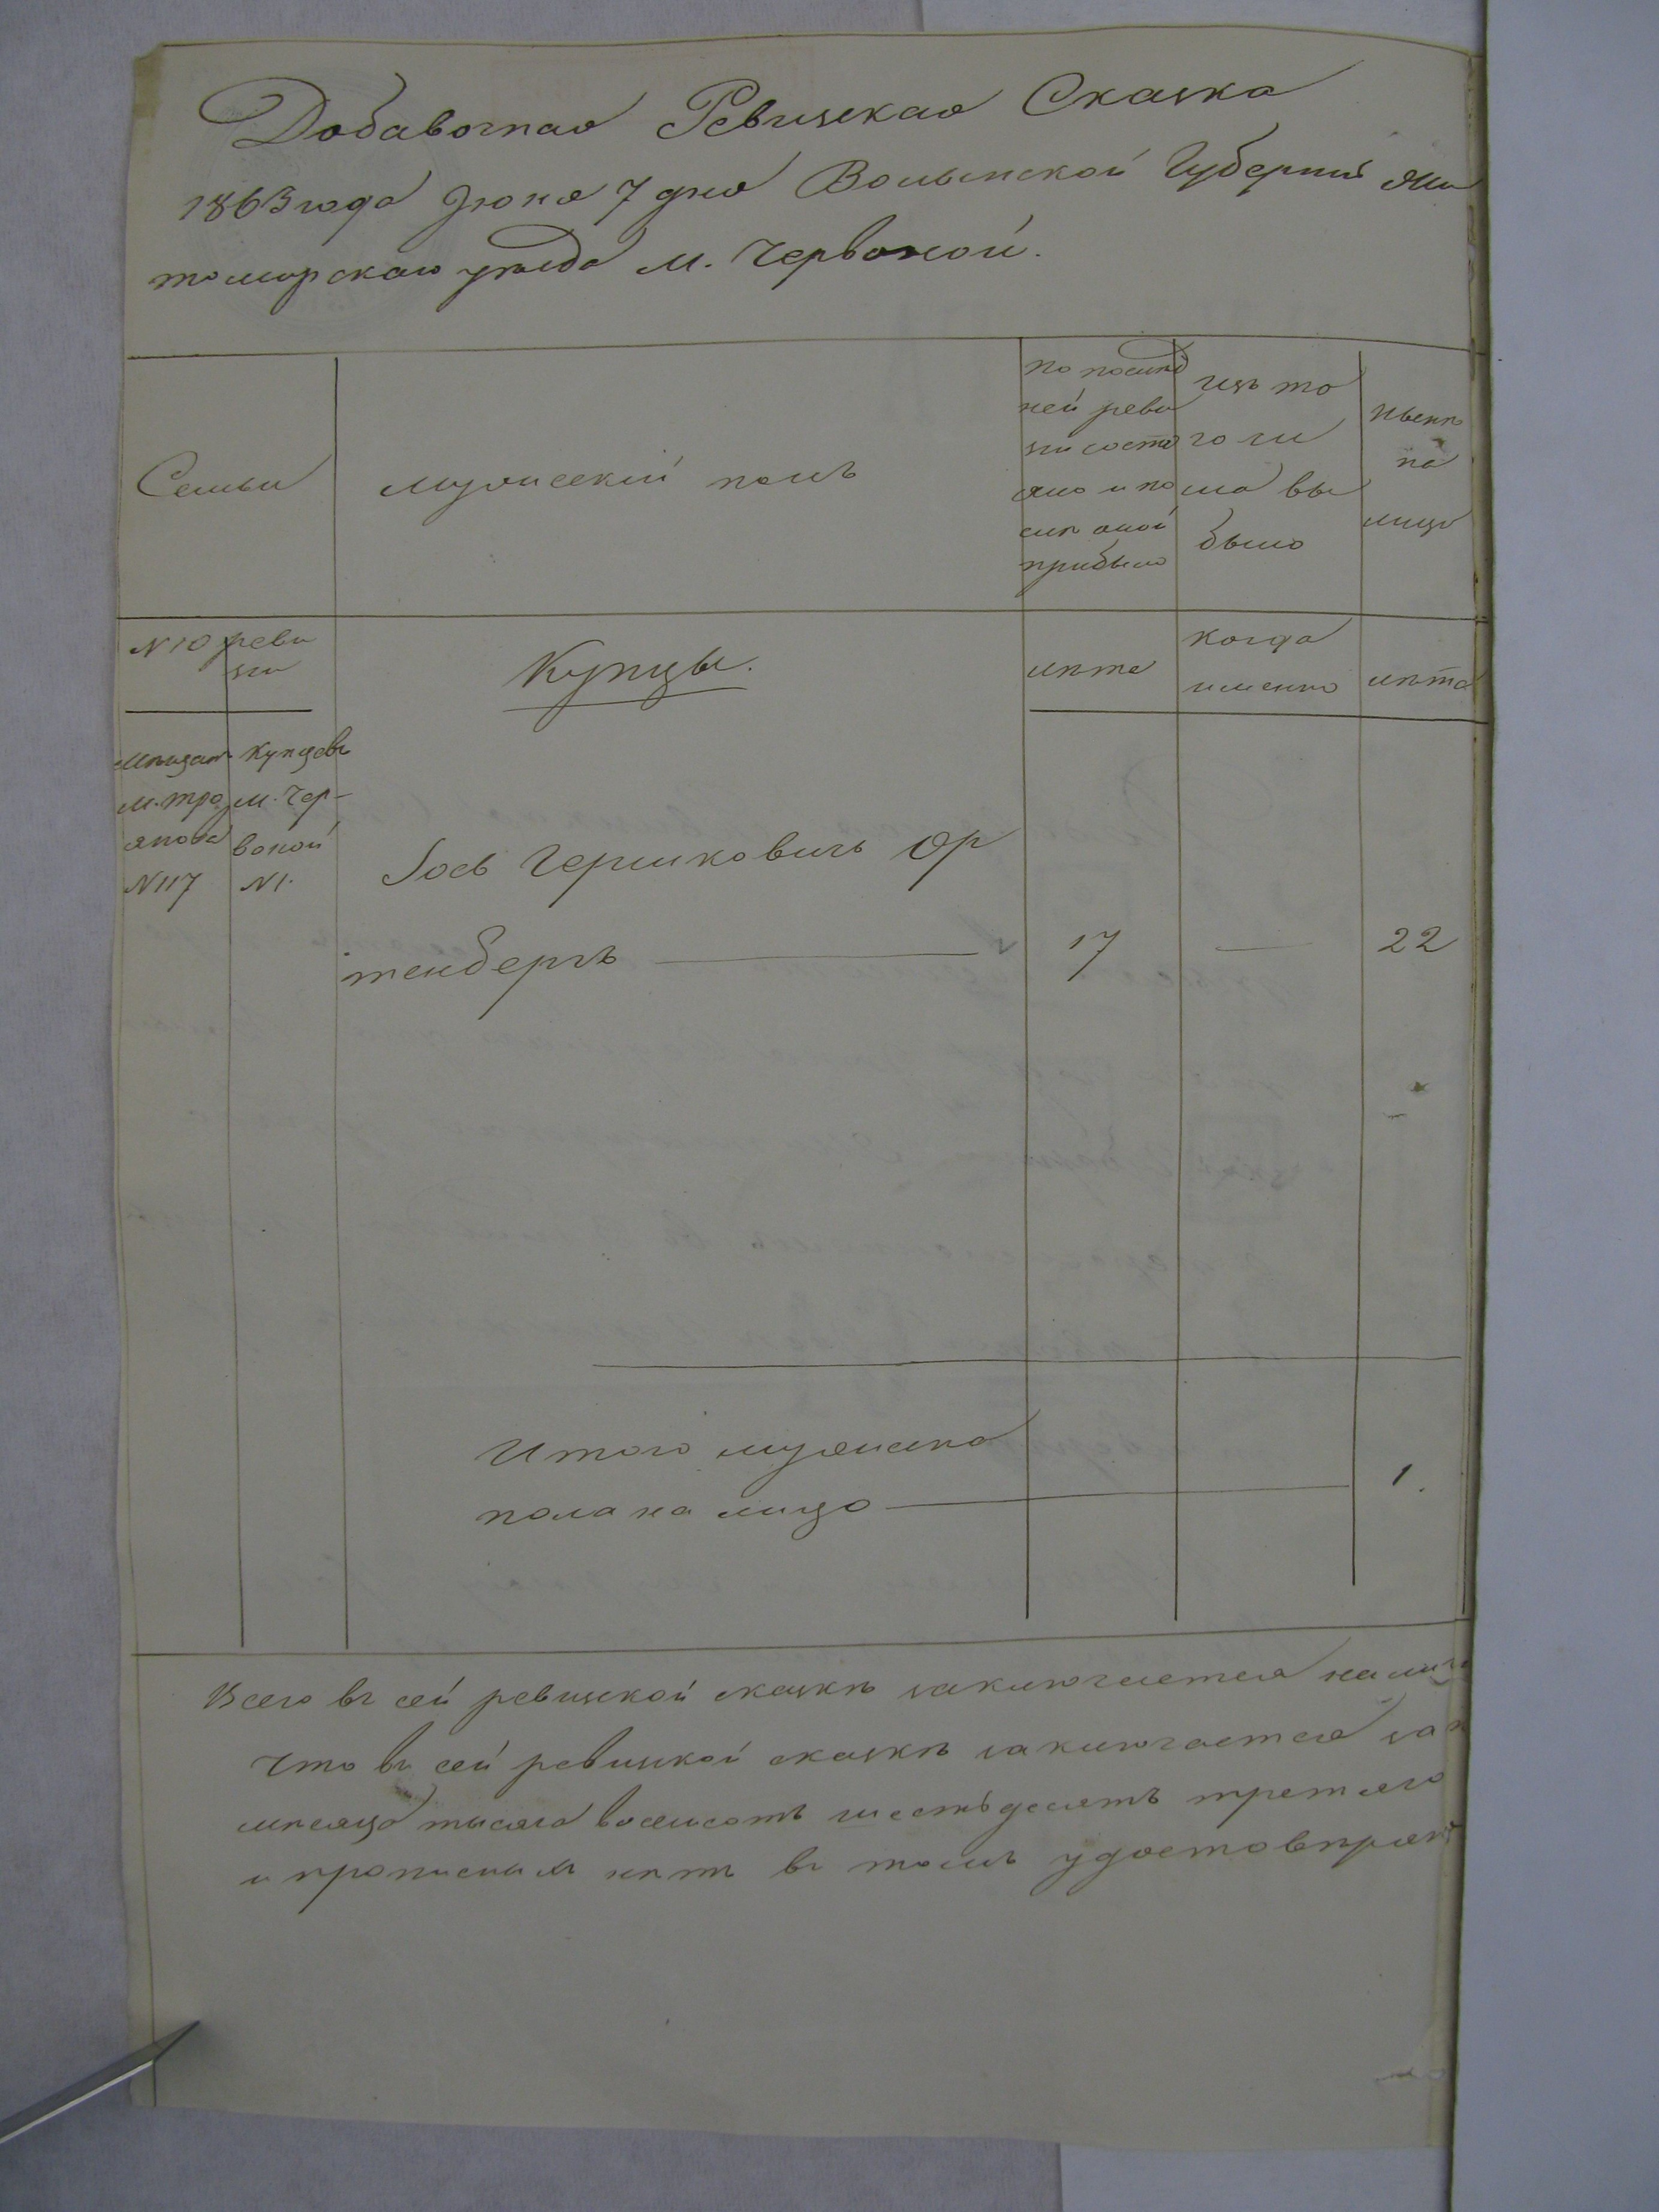 Добавочная Ревизская Сказка
1863 года Іюня 7 дня Волынской Губерніи Жи
томирскаго уѣзда м. Червоной.
Семьи
мужескій полъ
по послѣд
ней реви
зіи состо
яло и по
слѣ оной
прибыло
изъ то
го чи
сла вы
было
Нынѣ
на
лицо
№ 10 реви
зіи
Купцы.
лѣта
когда
именно
лѣта
Мѣщан
м. Тро
янова
№ 117
Купцовъ
м. Чер-
воной
№ 1.
Іось Гершковичъ Ор
тенбергъ
17
22
Итого мужеска
пола на лицо
1.
Всего въ сей ревизской сказкѣ заключается на лиц
Что въ сей ревизкой сказкѣ заключается
мѣсяца тысяча восемсотъ шестьдесятъ третьяго
и прописныхъ нѣтъ въ томъ удостовѣряю